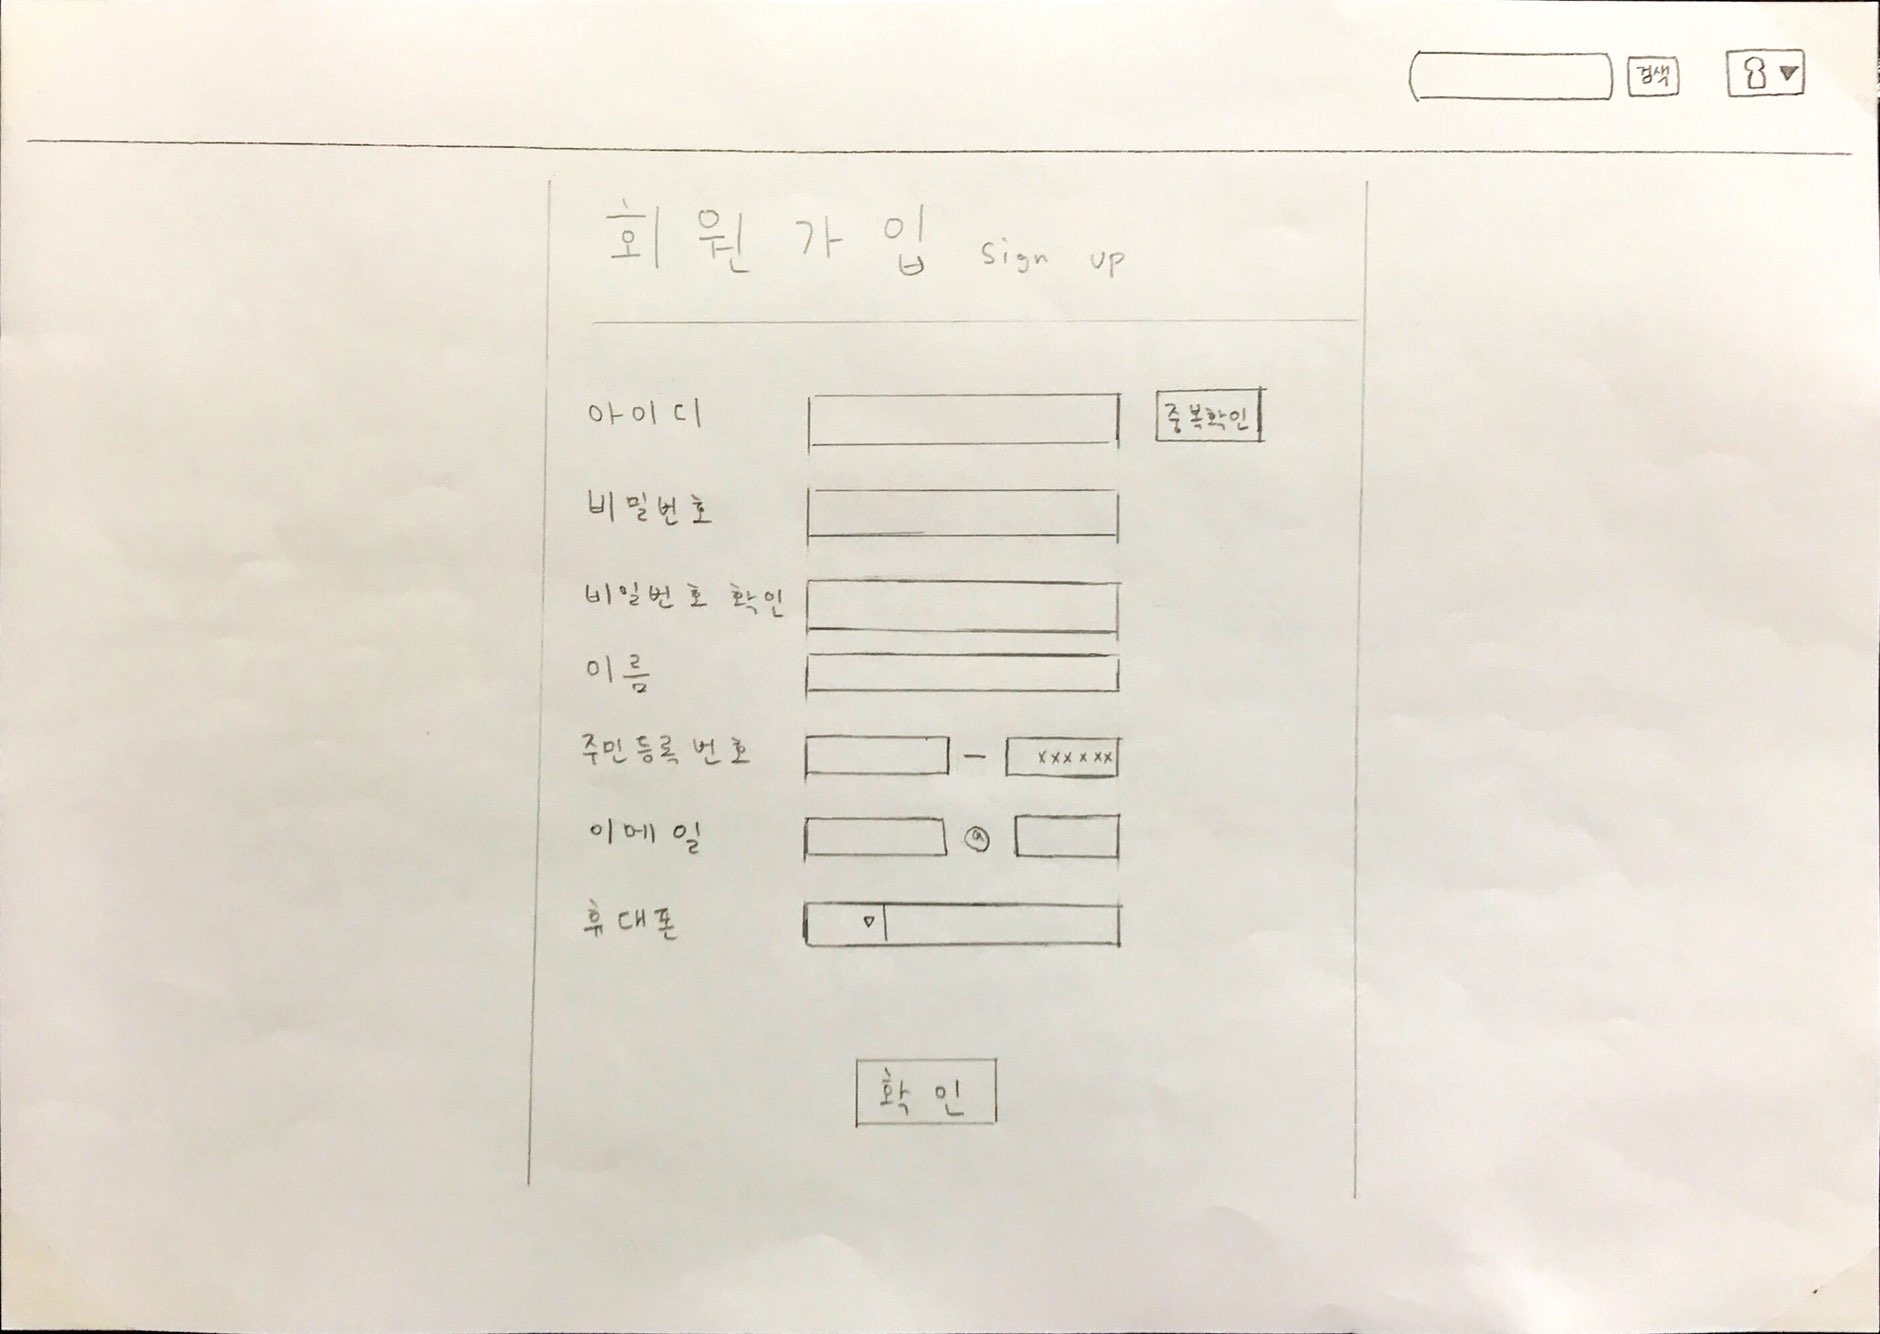 검색
회원가입 sign up
아이디 중복확인
비밀번호
비일번호 확인
이름
주민등록번호 - xxxxxx
이메일 @
휴대폰
확인